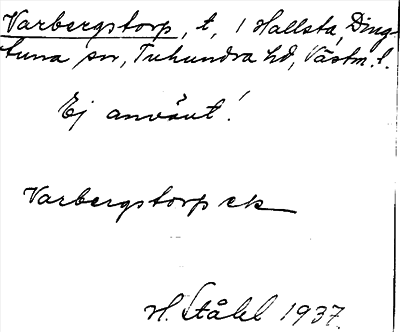 Varbergstorp, t, i Hallsta, Ding-
tuna sn, Tuhundra hd, Västm. l.
Ej använt!
Varbergstorp ek
H. Ståhl 1937.